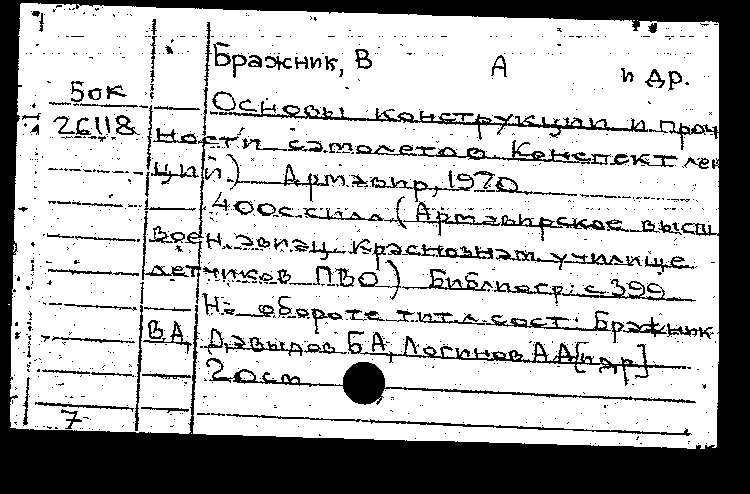 Бражник, В А и др.
50к
Основы конструкции и проч
26118
ности самолетов Конспект лек
ций.) Армавир, 1970
400с.с илл. (Армавирское высш
воен. авиац. краснознам училище
летчиков ПВО) Библиогр: с 399
На обороте тит л. сост: Бражник
В А, Давыдов Б А, Логинов А А [и др]
20 см
7